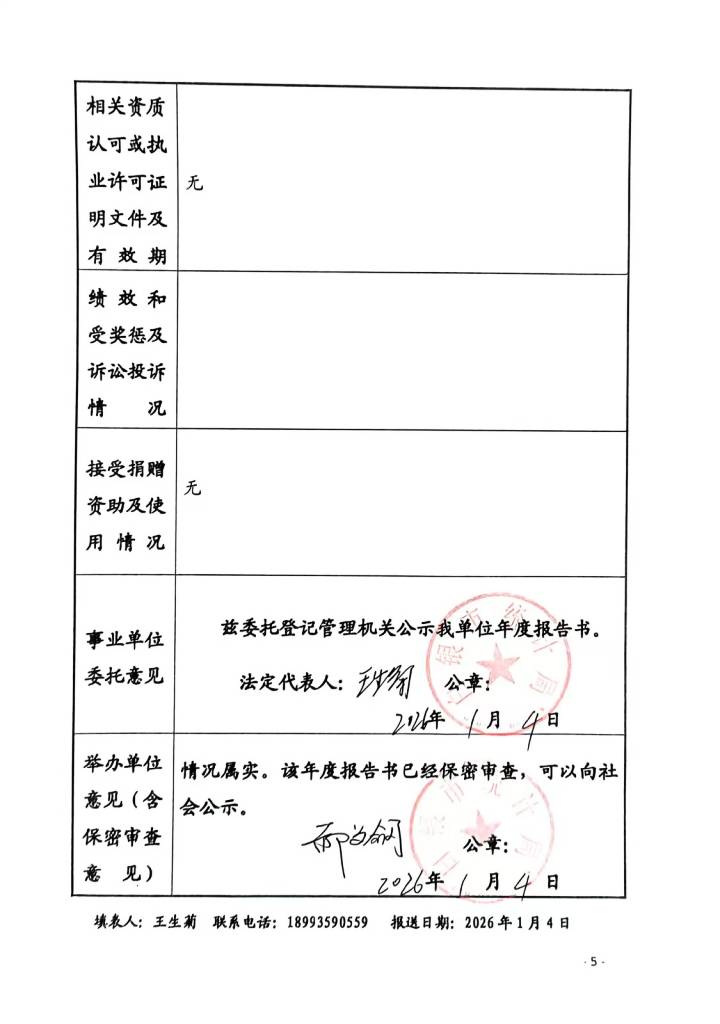 相关资质
认可或执
业许可证
明文件及
有效期
无
绩效和
受奖惩及
诉讼投诉
情况
接受捐赠
资助及使
用情况
无
事业单位
委托意见
兹委托登记管理机关公示我单位年度报告书。
法定代表人：王生菊 公章：
2026年1月4日
白银市统计局
举办单位
意见（含
保密审查
意见）
情况属实。该年度报告书已经保密审查，可以向社
会公示。
公章：
2026年1月4日
白银市统计局
填表人：王生菊 联系电话：18993590559 报送日期：2026年1月4日
·5·